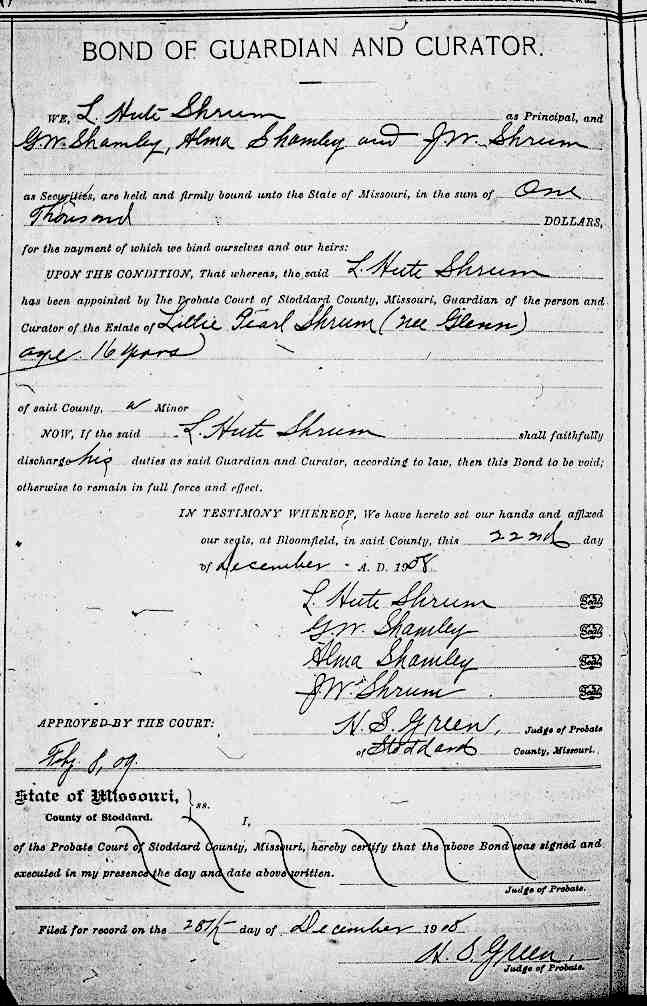 BOND OF GUARDIAN AND CURATOR.
WE, L Hute Shrum as Principal, and
G.W. Shamley, Alma Shamley and J.W. Shrum
as Securities, are held and firmly bound unto the State of Missouri, in the sum of One
Thousand DOLLARS,
for the payment of which we bind ourselves and our heirs:
UPON THE CONDITION, That whereas, the said L. Hute Shrum
has been appointed by the Probate Court of Stoddard County, Missouri, Guardian of the person and
Curator of the Estate of Lillie Pearl Shrum (nee Glenn)
age 16 years
of said County, a Minor
NOW, If the said L. Hute Shrum shall faithfully
discharge his duties as said Guardian and Curator, according to law, then this Bond to be void;
otherwise to remain in full force and effect.
IN TESTIMONY WHEREOF, We have hereto set our hands and affixed
our seals, at Bloomfield, in said County, this 22nd day
of December A. D. 1908
L. Hute Shrum Seal
G.W. Shamley Seal
Alma Shamley Seal
J.W. Shrum Seal
APPROVED BY THE COURT: H. S. Green, Judge of Probate
of Stoddard County, Missouri.
Feby 8, 09.
State of Missouri, } ss.
County of Stoddard. I,
of the Probate Court of Stoddard County, Missouri, hereby certify that the above Bond was signed and
executed in my presence the day and date above written.
Judge of Probate.
Filed for record on the 28th day of December 1908
H. S. Green,
Judge of Probate.